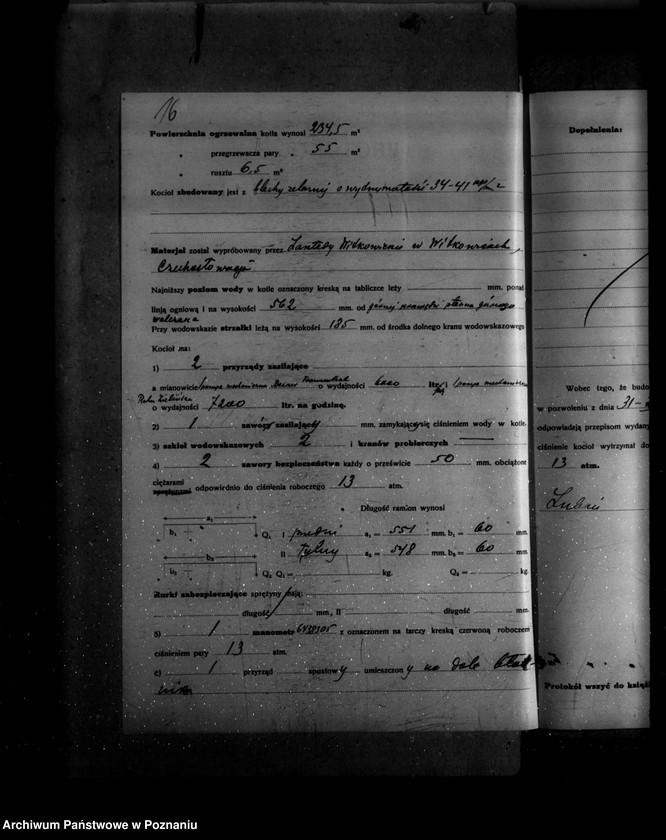 16
Powierzchnia ogrzewalna kotła wynosi 234,5 m²
„ przegrzewacza pary „ 55 m²
„ rusztu 6,5 m²
Kocioł zbudowany jest z blachy żelaznej o wytrzymałości 34-41
Materjał został wypróbowany przez w Witkowicach,
Czechosłowacja
Najniższy poziom wody w kotle oznaczony kreską na tabliczce leży mm. ponad
linją ogniową i na wysokości 562 mm. od górnej
walczaka
Przy wodowskazie strzałki leżą na wysokości 185 mm. od środka dolnego kranu wodowskazowego
Kocioł ma:
1) 2 przyrządy zasilające
a mianowicie o wydajności 6000 ltr/
o wydajności 7200 ltr. na godzinę.
2) 1 zawory zasilający mm. zamykający się ciśnieniem wody w kotle.
3) szkieł wodowskazowych 2 i kranów probierczych
4) 2 zawory bezpieczeństwa każdy o prześwicie 50 mm. obciążone
ciężarami
sprężynami odpowiednio do ciśnienia roboczego 13 atm.
Długość ramion wynosi
a₁
b₁ Q₁ I przedni a₁ = 551 mm. b₁ = 60 mm.
b₂ II tylny a₂ = 548 mm. b₂ = 60 mm.
Q₁ = kg. Q₂ = kg.
Rurki zabezpieczające sprężyny mają:
długość mm, II długość mm.
5) 1 manometr 6438305 z oznaczonem na tarczy kreską czerwoną roboczem
ciśnieniem pary 13 atm.
6) 1 przyrząd spustowy umieszczony na dole
Dopełnienia:
Wobec tego, że budo
w pozwoleniu z dnia 31-
odpowiadają przepisom wydany
ciśnienie kocioł wytrzymał do
13 atm.
Luboń
Protokół wszyć do książ
Archiwum Państwowe w Poznaniu